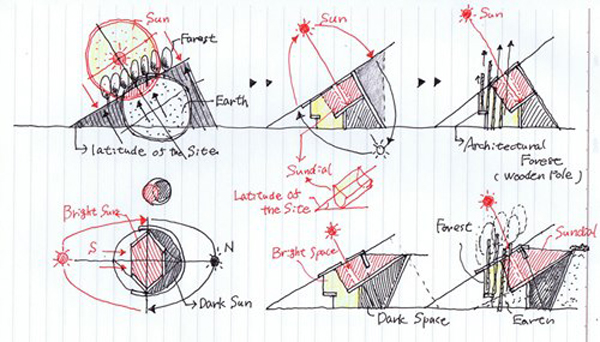 Sun
Forest
Earth
latitude of the Site.
Sun
Sundial
Latitude of
the Site
Sun
Architectural
Forest
(Wooden Pole)
Bright Sun
S
N
Dark Sun
Bright Space
Dark Space
Forest
Sundial
Earth